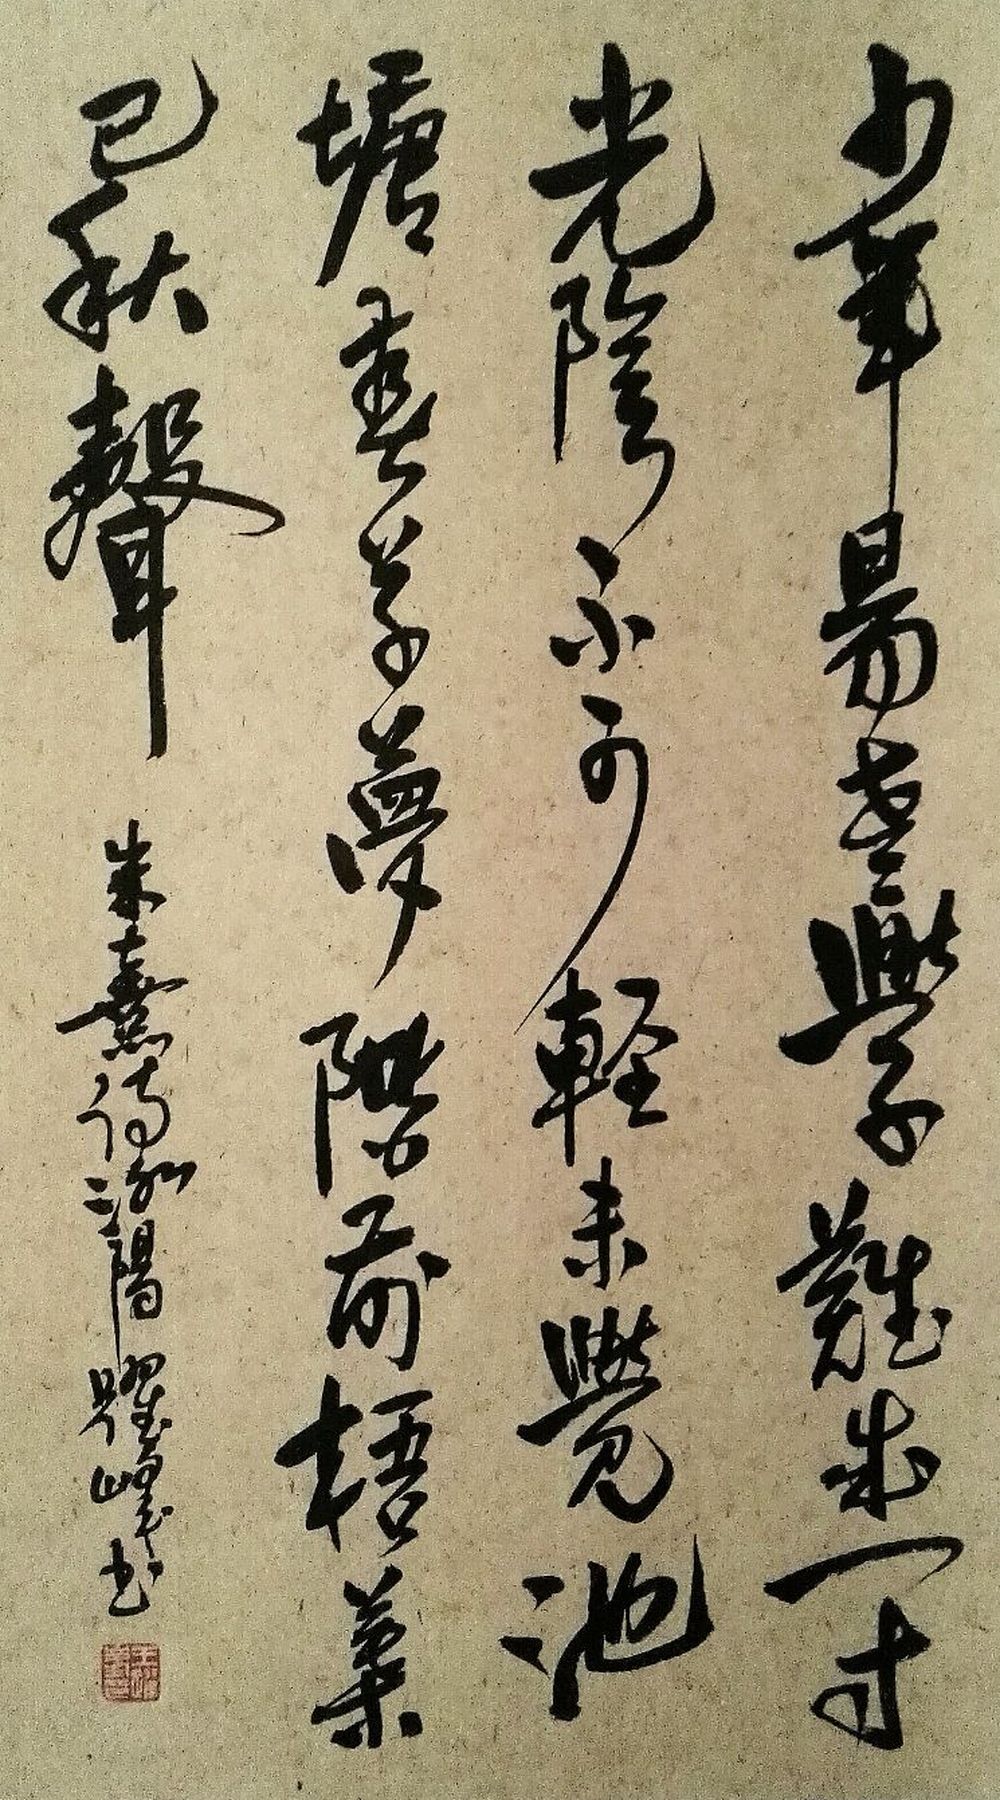 少年易老學難成一寸
光陰不可輕未覺池
塘春草夢階前梧葉
已秋聲
朱熹詩 陽躍峰書